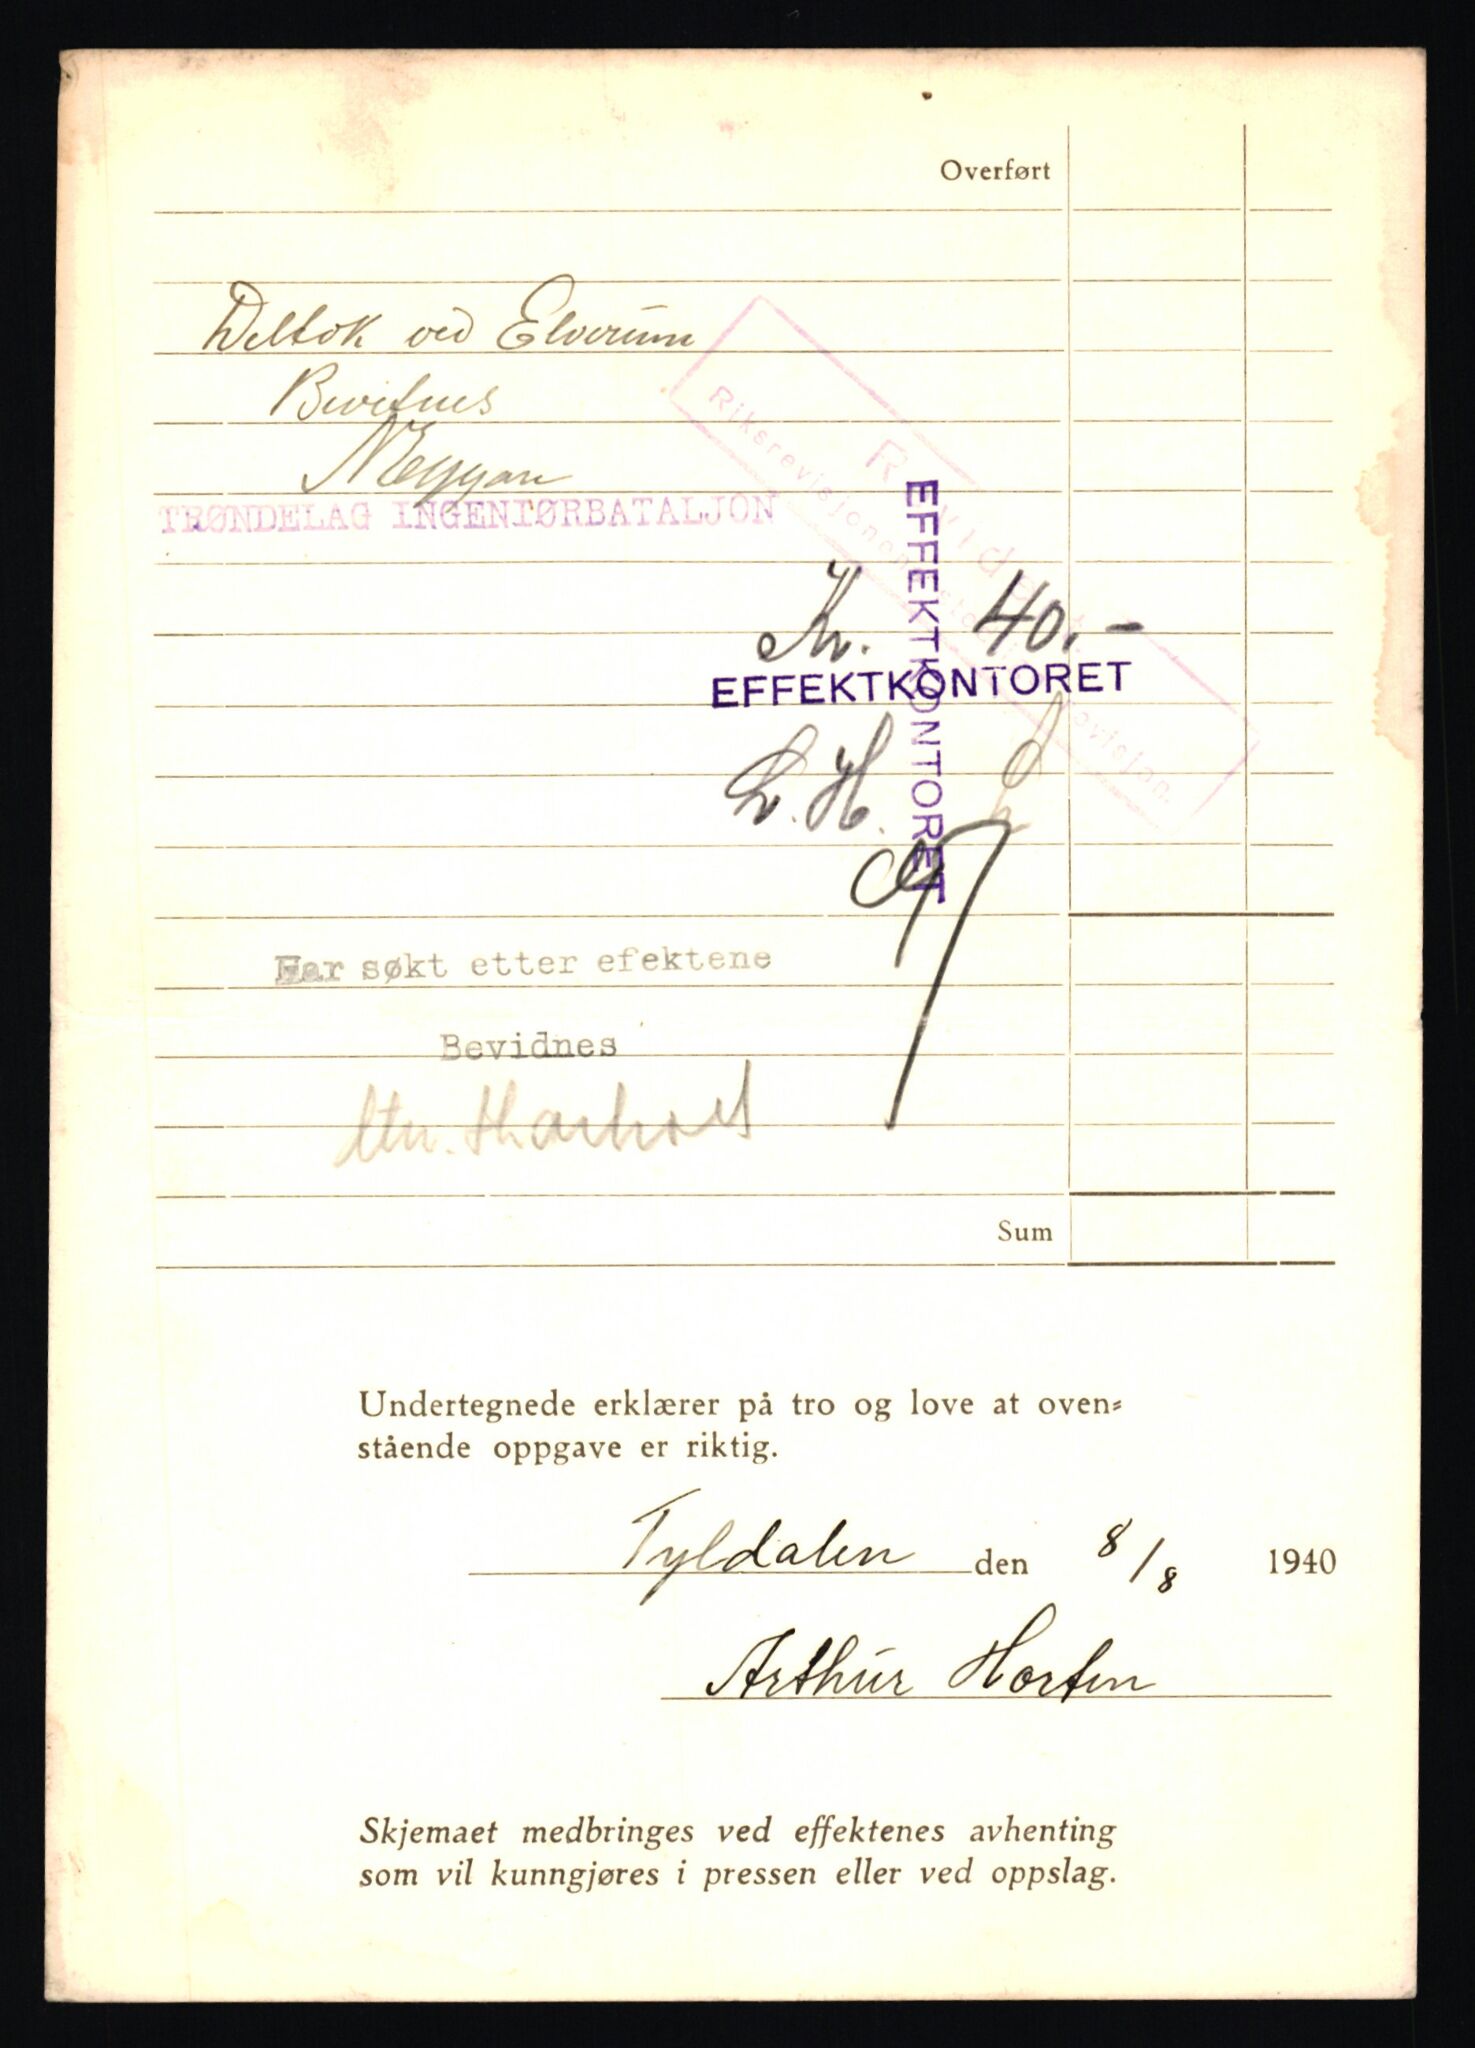 Overført
Deltok ved Elverum
Bevitnes
TRØNDELAG INGENIØRBATALJON
Revidert.
Riksrevisjonen
revisjon.
EFFEKTKONTORET
Kr. 40.-
EFFEKTKONTORET
L.H.
Har søkt etter efektene
Bevidnes
Sum
Undertegnede erklærer på tro og love at oven-
stående oppgave er riktig.
Tyldalen den 8/8 1940
Arthur Horten
Skjemaet medbringes ved effektenes avhenting
som vil kunngjøres i pressen eller ved oppslag.